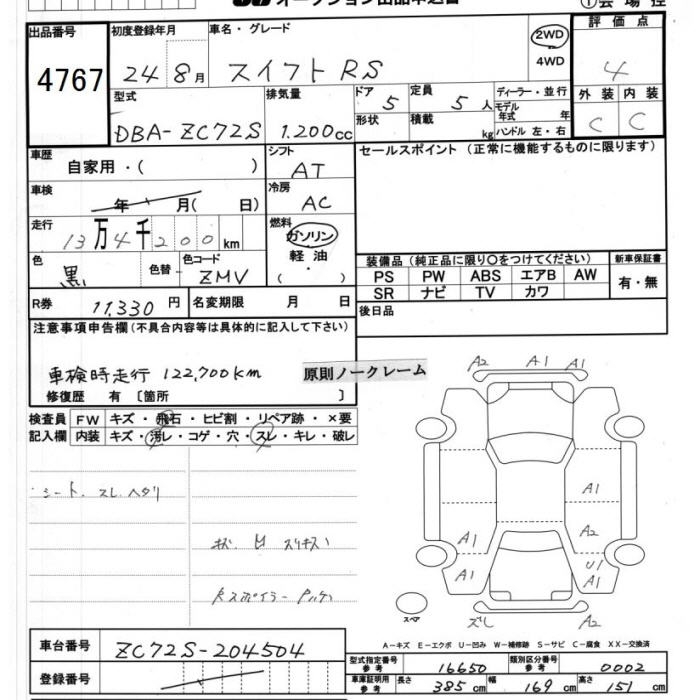 オークション出品申込書
① 会場控
出品番号 初度登録年月 車名・グレード 2WD 4WD 評価点
4767 24 8月 スイフトRS 4
型式 排気量 ドア 5 定員 5人 ディーラー・並行 外装 内装
DBA-ZC72S 1.200cc 形状 積載 kg モデル年式 年 ハンドル 左・右 C C
車歴 自家用・( ) シフト AT セールスポイント (正常に機能するものに限ります)
車検 年 月( 日) 冷房 AC
走行 13万4千200km 燃料 ガソリン 軽油 ( ・ )
色 黒 色替 色コード ZMV
装備品 (純正品に限り○をつけてください) 新車保証書
PS PW ABS エアB AW 有・無
SR ナビ TV カワ
R券 11,330円 名変期限 月 日 後日品
注意事項申告欄(不具合内容等は具体的に記入して下さい)
車検時走行 122,700km 原則ノークレーム
修復歴 有 [箇所 ]
検査員 FW キズ・飛石・ヒビ割・リペア跡・×要
記入欄 内装 キズ・汚レ・コゲ・穴・スレ・キレ・破レ
A2 A1 A1
シート.スレ.ヘタリ A1
キズ. A1 A2
A1 U1 A1
Rスポイラー
スペア ズレ A2
A-キズ E-エクボ U-凹み W-補修跡 S-サビ C-腐食 XX-交換済
車台番号 ZC72S-204504
型式指定番号 参考 16650 類別区分番号 参考 0002
登録番号
車庫証明用 参考 長さ 385cm 幅 169cm 高さ 151cm